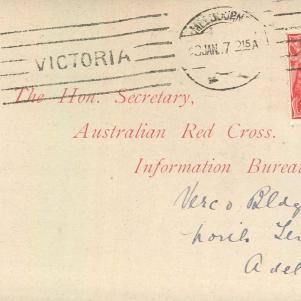 MELBOURN
VICTORIA
JAN. 7 215A
The Hon. Secretary,
Australian Red Cross.
Information Burea
Verco Bldg
North Ter
Adel